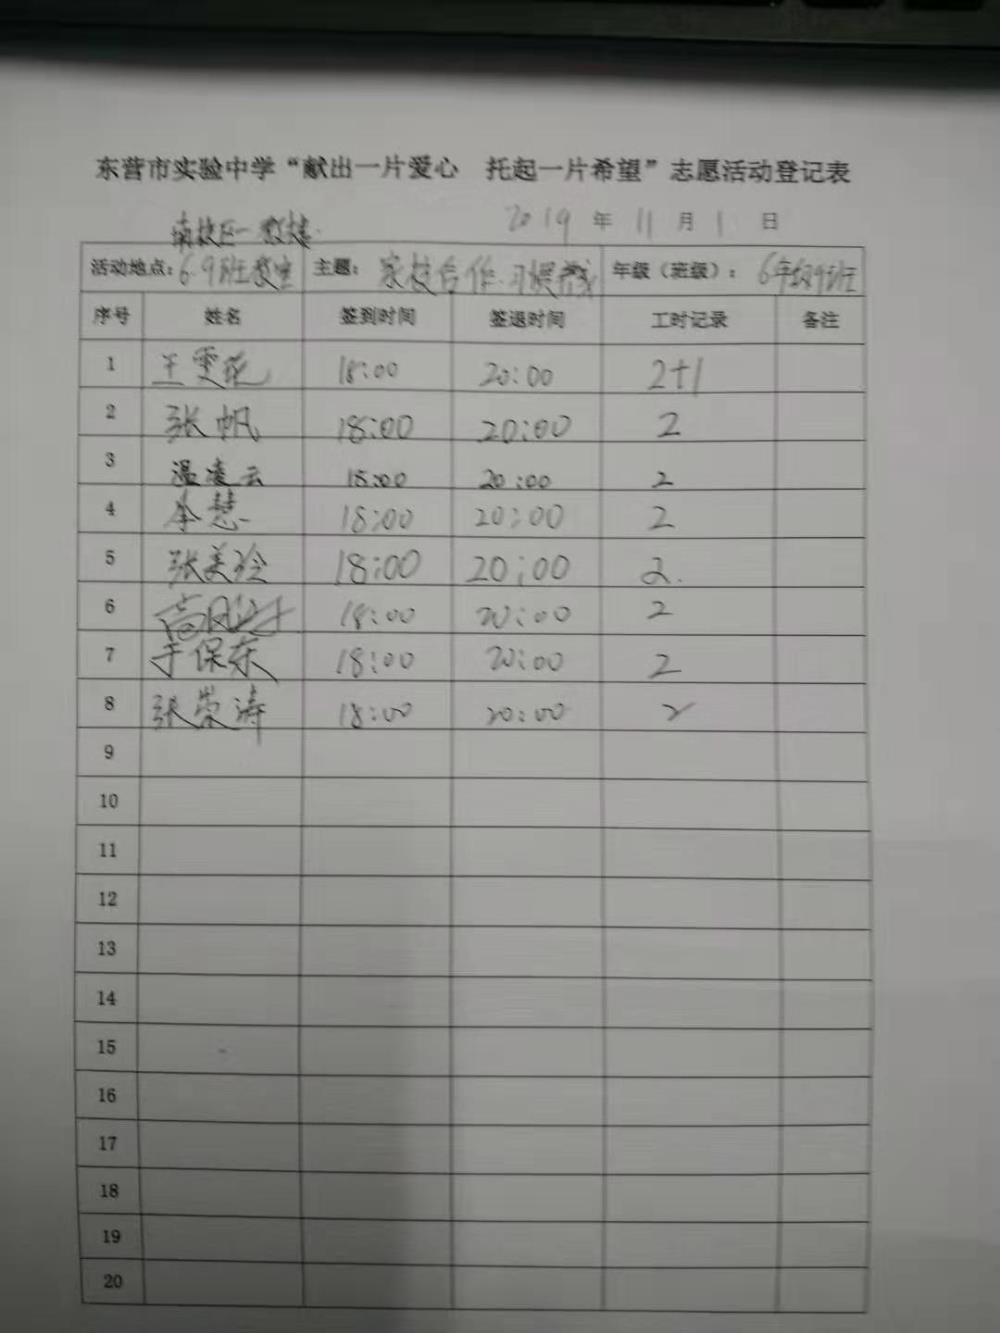 东营市实验中学“献出一片爱心 托起一片希望”志愿活动登记表
2019 年 11 月 1 日
南校区一教楼
活动地点：6.9班教室 主题：家校合作.习惯养成 年级（班级）：6年级9班
序号 姓名 签到时间 签退时间 工时记录 备注
1 王雯花 18:00 20:00 2+1
2 张帆 18:00 20:00 2
3 温凌云 18:00 20:00 2
4 李慧 18:00 20:00 2
5 张美玲 18:00 20:00 2.
6 18:00 20:00 2
7 于保东 18:00 20:00 2
8 张崇涛 18:00 20:00 2
9
10
11
12
13
14
15
16
17
18
19
20